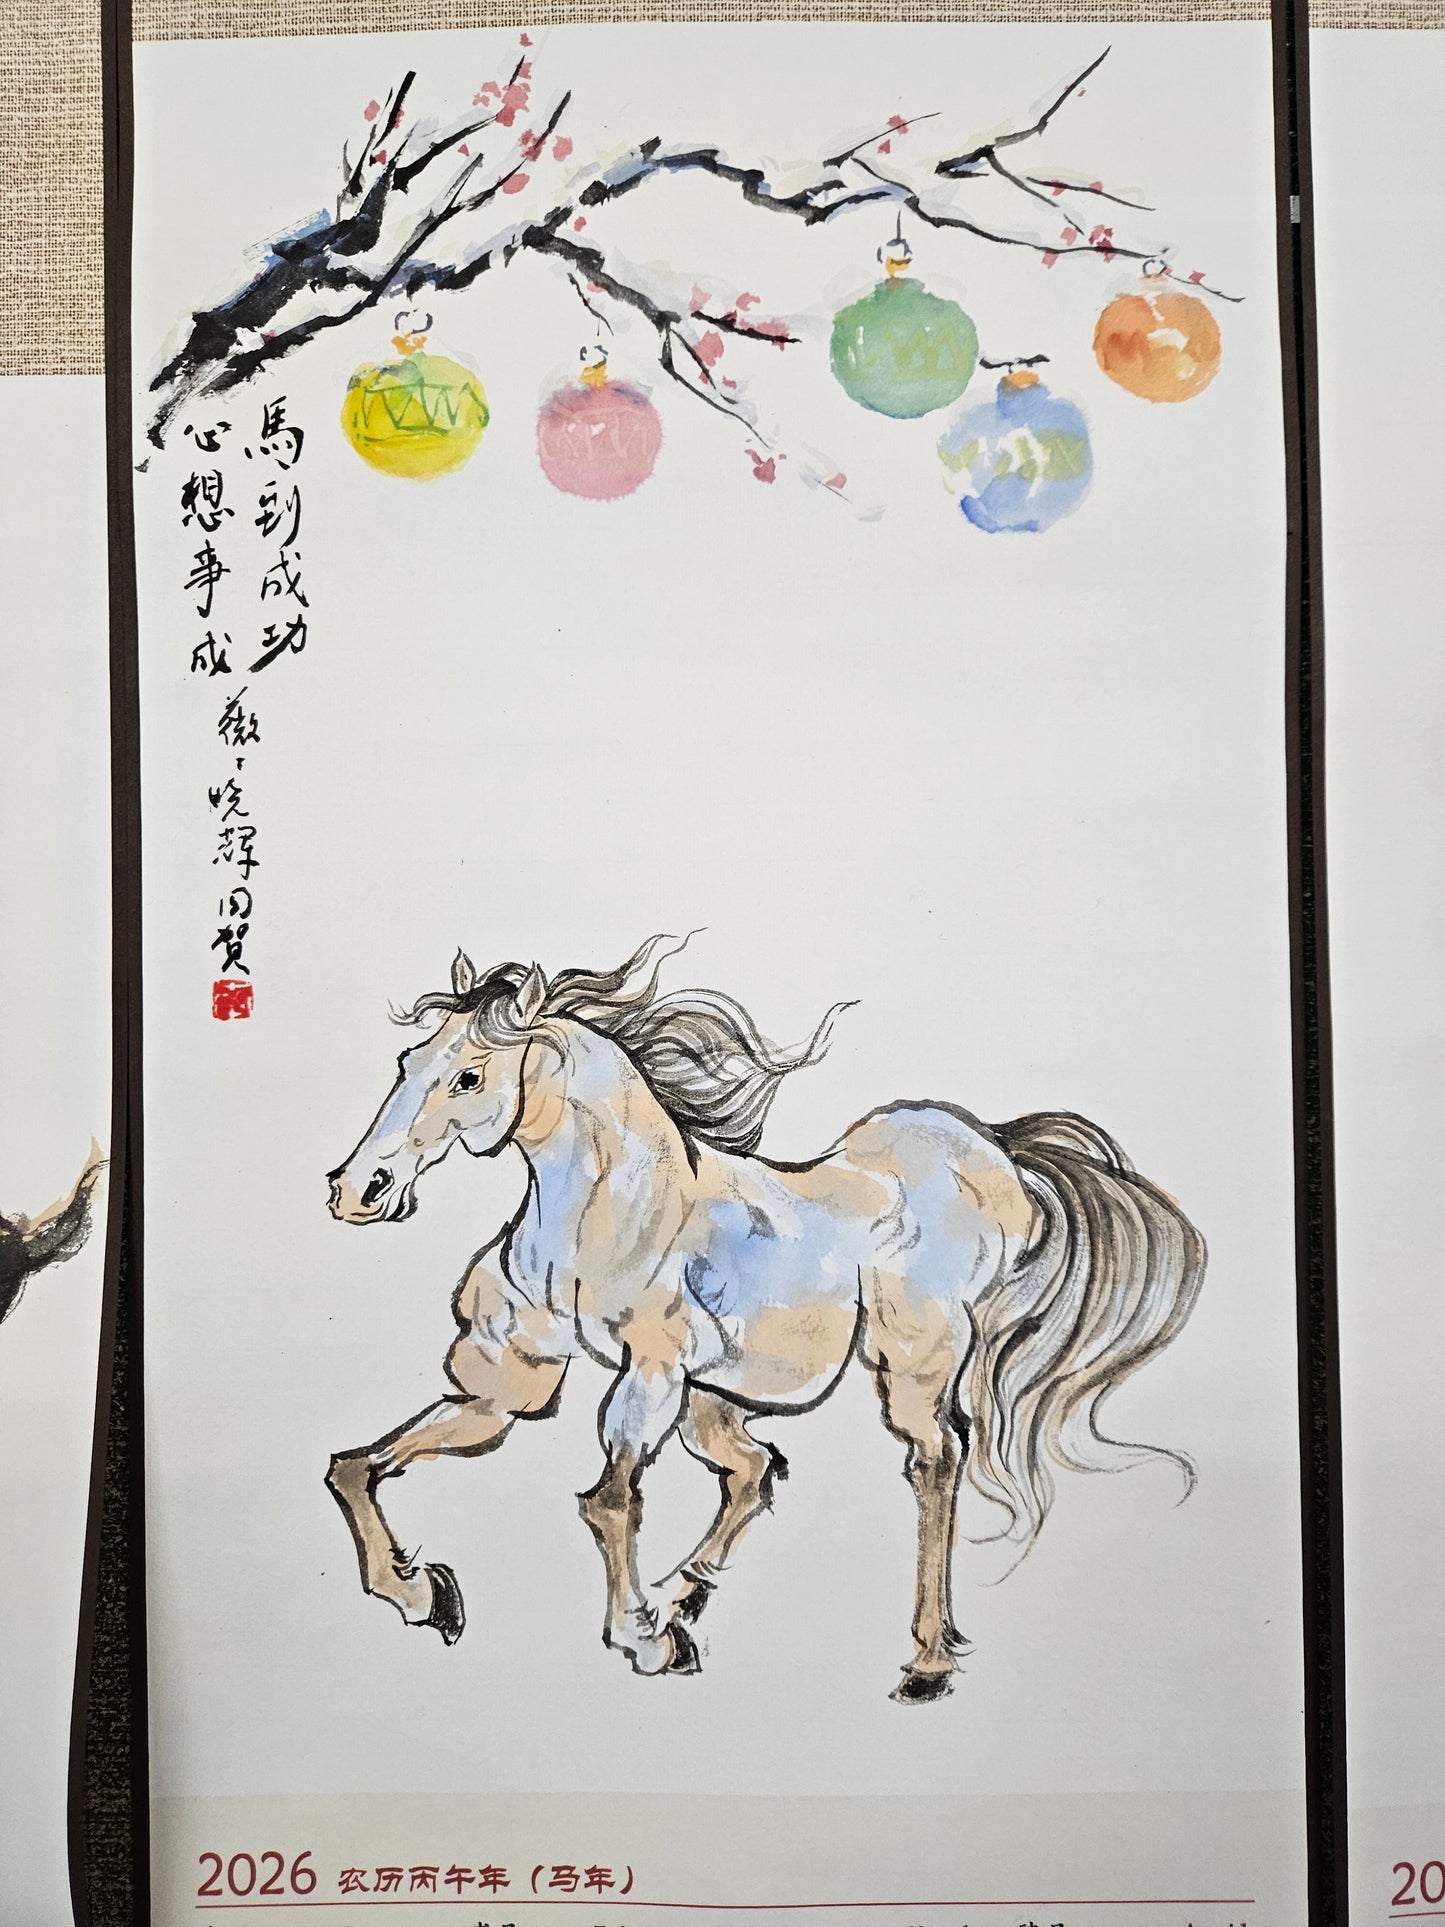 馬到成功
心想事成
薇〻晓輝同賀
2026 农历丙午年（马年）
20